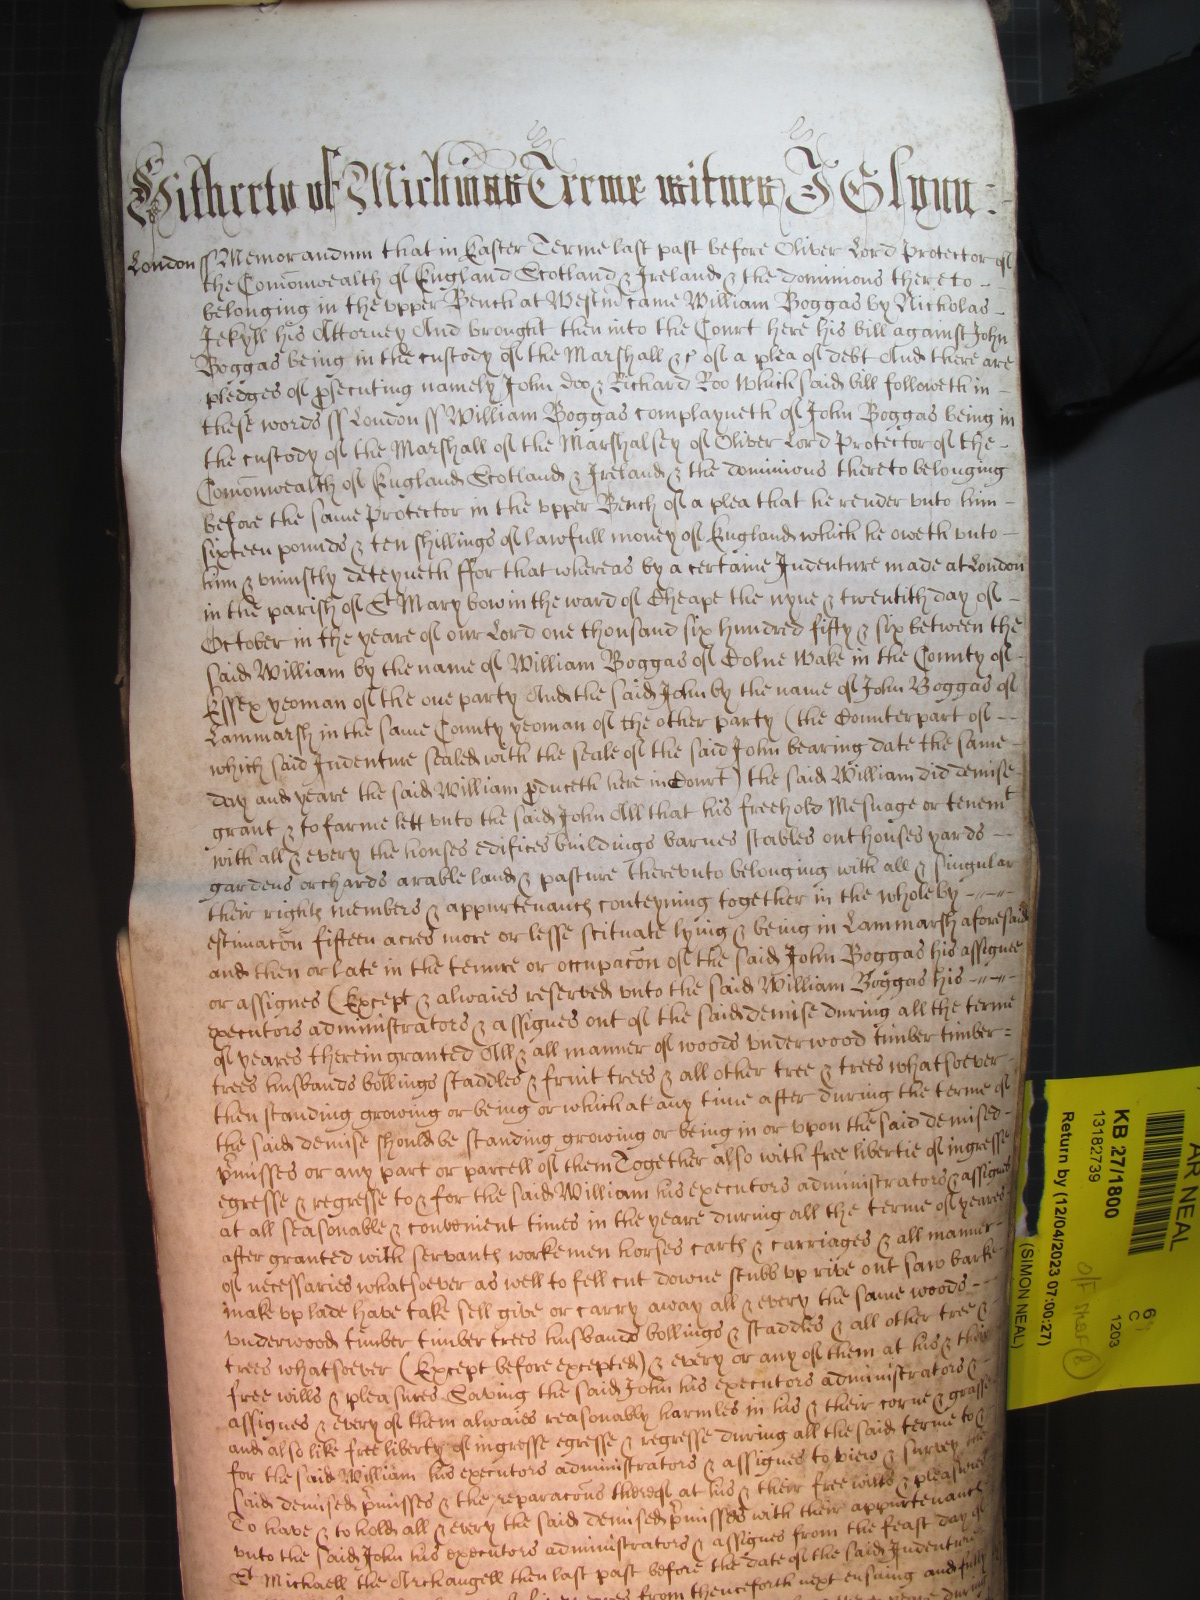 Hitherto of Michmas Terme witnes J Glynn :
London ss Memorandum that in Easter Terme last past before Oliver Lord Protector of
the Comonwealth of England Scotland & Ireland & the dominions thereto -
belonging in the upper Bench at Westm came William Boggas by Nicholas -
Jekyll his Attorney And brought then into the Court here his bill against John
Boggas being in the custody of the Marshall &c of a plea of debt And there are
pledges of psecuting namely John doo & Richard Roo Which said bill followeth in -
these words ss London ss William Boggas complayneth of John Boggas being in
the custody of the Marshall of the Marshalsey of Oliver Lord Protector of the -
Comonwealth of England Scotland & Ireland & the dominions thereto belonging
before the same Protector in the upper Bench of a plea that he render unto him -
sixteen pounds & ten shillings of lawfull money of England which he oweth unto -
him & uniustly deteyneth ffor that whereas by a certaine Indenture made at London
in the parish of St Mary bow in the ward of Cheape the nyne & twentith day of -
October in the yeare of our Lord one thousand six hundred fifty & six between the
said William by the name of William Boggas of Colne Wake in the County of -
Essex yeoman of the one party And the said John by the name of John Boggas of
Lammarsh in the same County yeoman of the other party (the Counterpart of --
which said Indenture sealed with the seale of the said John bearing date the same -
day and yeare the said William pduceth here in Court) the said William did demise -
grant & to farme lett unto the said John All that his freehold Mesuage or tenemt
with all & every the houses edifices buildings barnes stables outhouses yards --
gardens orchards arable land & pasture thereunto belonging with all & singular
their rights members & appurtenances conteyning together in the whole by ---
estimacon fifteen acres more or lesse scituate lying & being in Lammarsh aforesaid
and then or late in the tenure or occupacon of the said John Boggas his assignee
or assignes (Except & alwaies reserved unto the said William Boggas his ---
executors administrators & assignes out of the said demise during all the terme
of yeares therein granted All & all manner of woods underwood timber timber =
trees husbands bollings staddles & fruit trees & all other tree & trees whatsoever -
then standing growing or being or which at any time after during the terme of
the said demise should be standing growing or being in or upon the said demised -
pmisses or any part or parcell of them Together also with free libertie of ingresse
egresse & regresse to & for the said William his executors administrators & assignes
at all seasonable & convenient times in the yeare during all the terme of yeares
after granted with servants workemen horses carts & carriages & all manner -
of necessaries whatsoever as well to fell cut downe stubb up rive out saw barke
make up lade have take sell give or carry away all & every the same woods --
underwoods timber timber trees husbands bollings & staddles & all other tree &
trees whatsoever (Except before excepted) & every or any of them at his & their
free wills & pleasures Saving the said John his executors administrators &
assignes & every of them alwaies reasonably harmles in his & their corne & grasse
and also like free liberty of ingresse egresse & regresse during all the said terme to &
for the said William his executors administrators & assignes to view & survey the
said demised pmisses & the reparacons thereof at his & their free wills & pleasures
To have & to hold all & every the said demised pmisses with their appurtenances
unto the said John his executors administrators & assignes from the feast day of
St Michaell the Archangell then last past before the date of the said Indenture
from thenceforth next ensuing and fully
AR NEAL
KB 27/1800
13182739
Return by (12/04/2023 07:00:27)
(SIMON NEAL)
C
1203